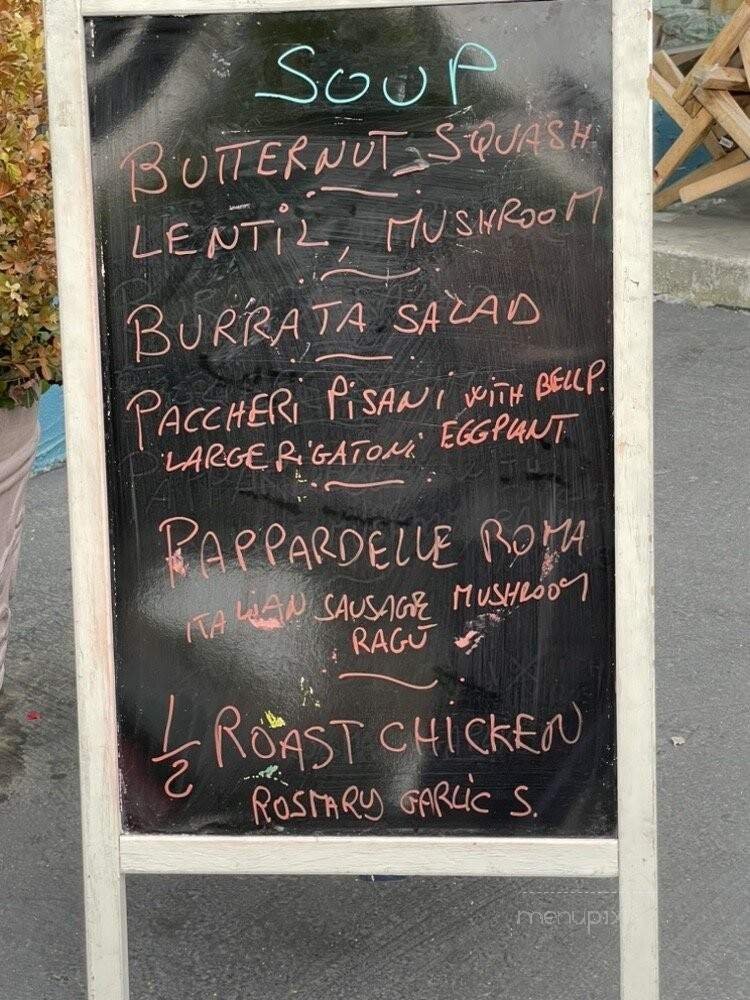 SOUP
BUTTERNUT SQUASH
LENTIL, MUSHROOM
BURRATA SALAD
PACCHERI PISANI WITH BELL P.
LARGE RIGATONI EGGPLANT
PAPPARDELLE ROMA
ITALIAN SAUSAGE MUSHROOM
RAGÚ
1/2 ROAST CHICKEN
ROSMARY GARLIC S.
menupix